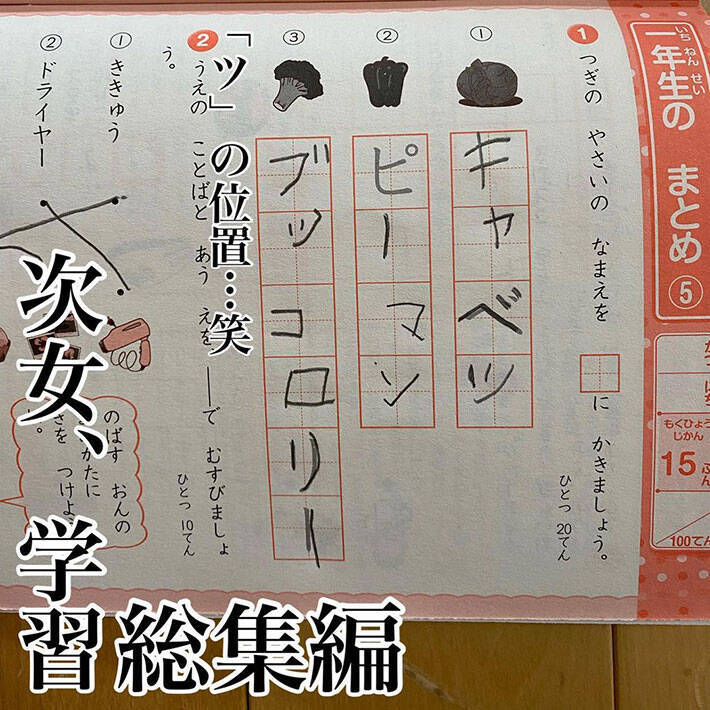 一年生の まとめ⑤
いち ねん せい
もくひょう
じかん
15ふん
100てん
1 つぎの やさいの なまえを □に かきましょう。
ひとつ 20てん
①
キャベツ
②
ピーマン
③
ブッコロリー
2 うえの ことばと あう えを ―で むすびましょ
う。
ひとつ 10てん
① ききゅう
② ドライヤー
のばす おんの
つけよ
「ツ」の位置…笑
次女、学習総集編